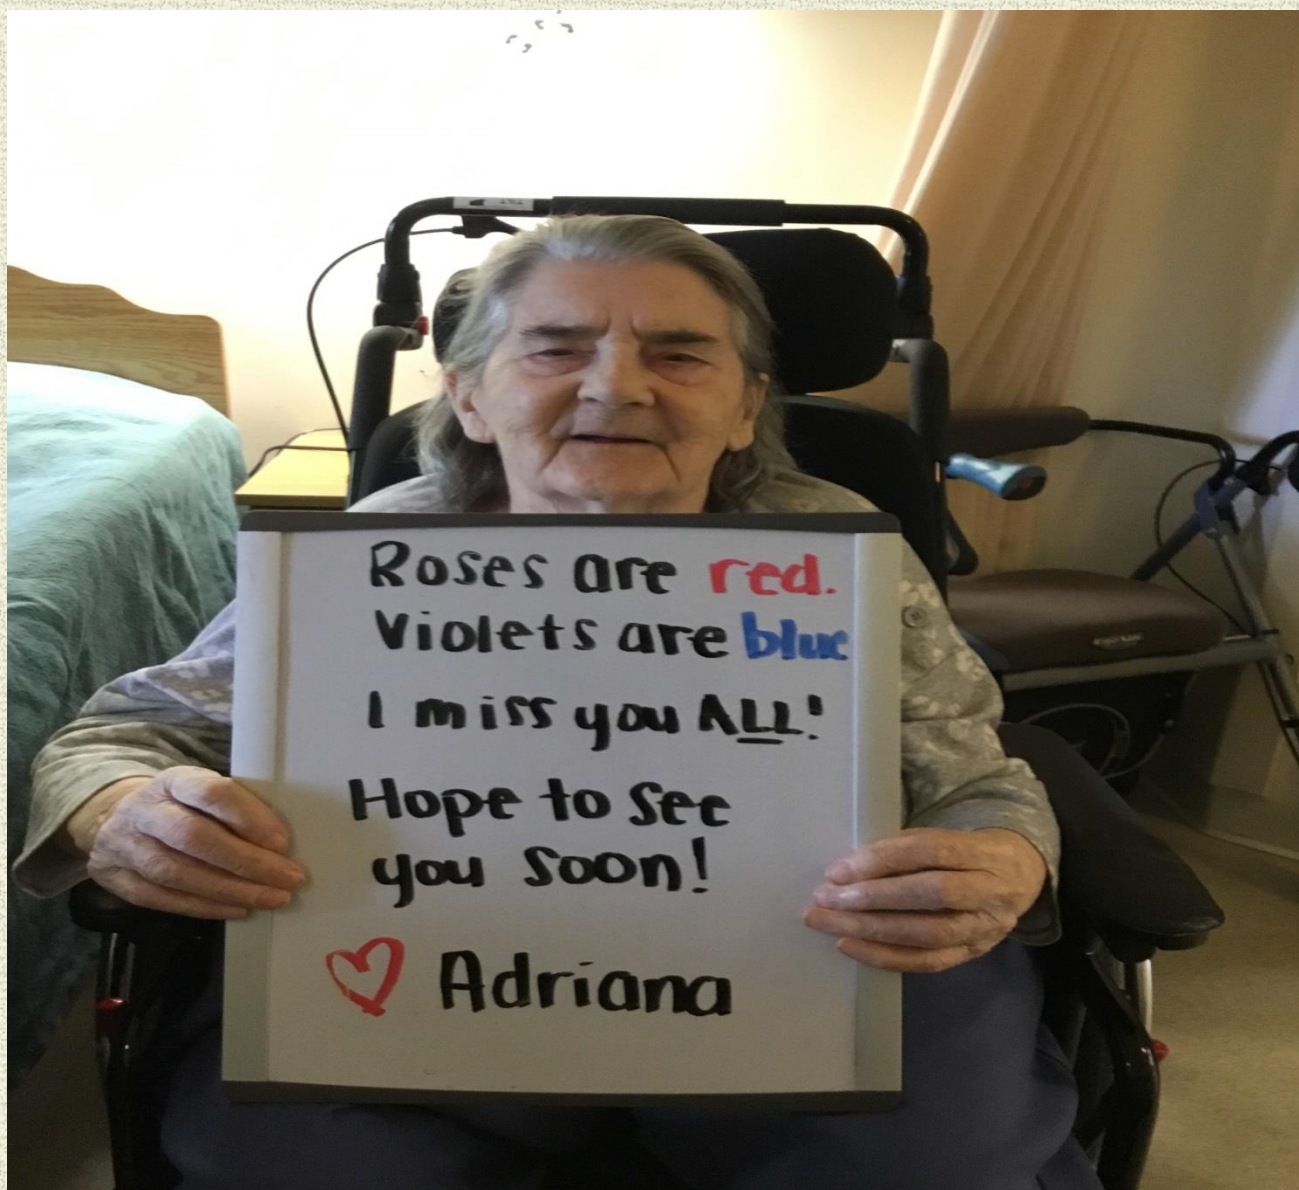 Roses are red.
Violets are blue
I miss you ALL!
Hope to see
you soon!
♡ Adriana